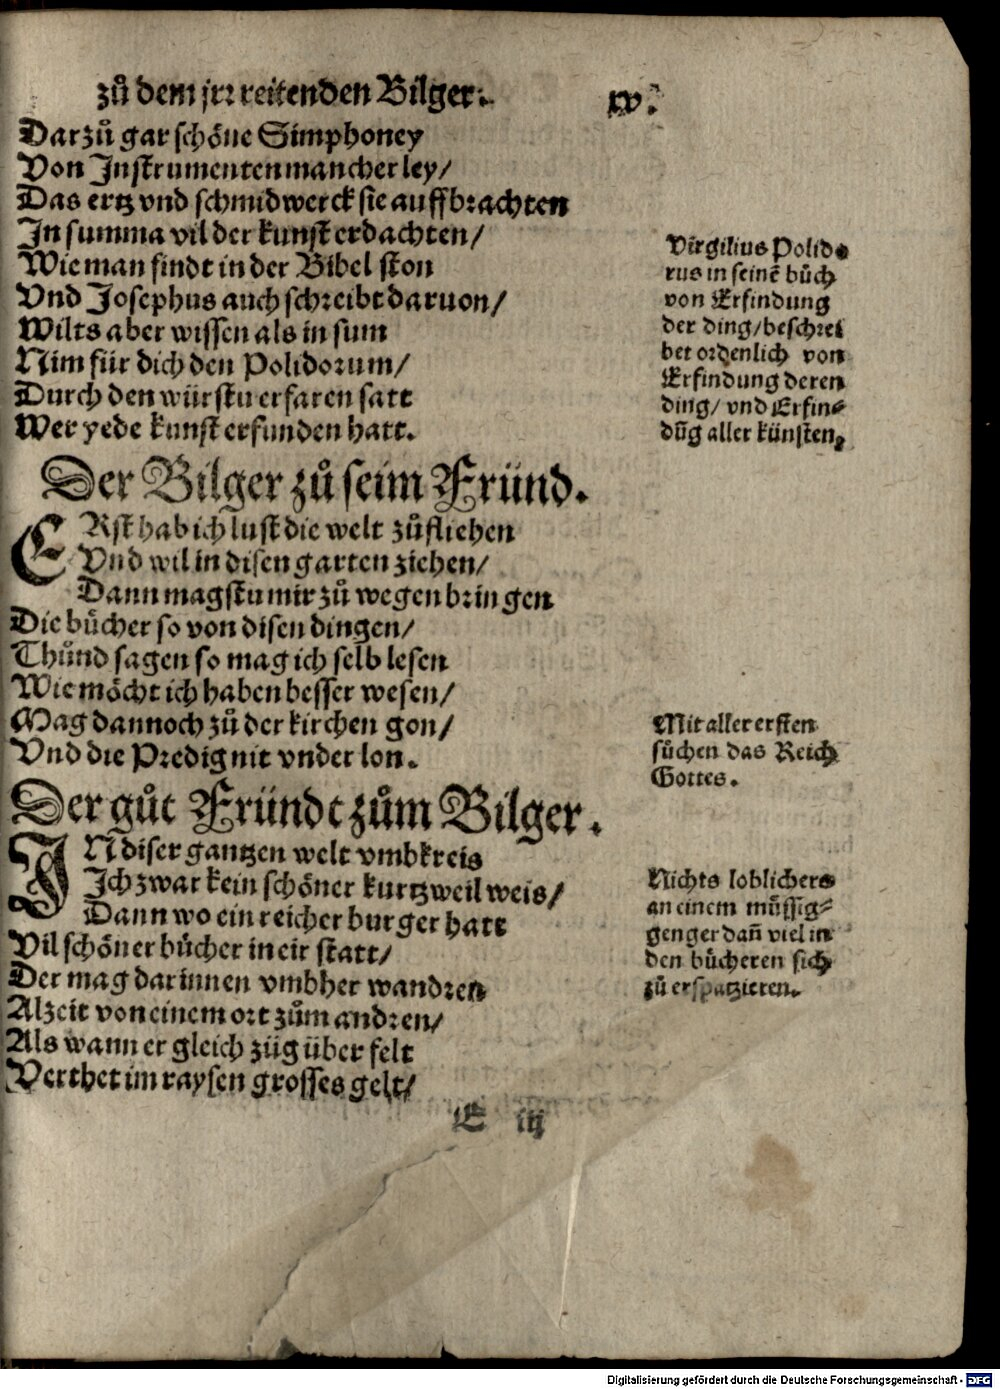 zů dem jrr reitenden Bilger.
xv.
Darzů gar schöne Simphoney
Von Instrumenten mancherley/
Das ertz vnd schmidwerck sie auffbrachten
In summa vil der kunst erdachten/
Wie man findt in der Bibel ston
Vnd Josephus auch schreibt daruon/
Wilts aber wissen als in sum
Nim für dich den Polidorum/
Durch den würstu erfaren satt
Wer yede kunst erfunden hatt.
Virgilius Polido
rus in seinē bůch
von Erfindung
der ding/beschrei
bet ordenlich von
Erfindung deren
ding/ vnd Erfin⸗
dūg aller künsten,
Der Bilger zů seim Fründ.
ERst hab ich lust die welt zůfliehen
Vnd wil in disen garten ziehen/
Dann magstu mir zů wegen bringen
Die bůcher so von disen dingen/
Thůnd sagen so mag ich selb lesen
Wie möcht ich haben besser wesen/
Mag dannoch zů der kirchen gon/
Vnd die Predig nit vnder lon.
Mit aller ersten
sůchen das Reich
Gottes.
Der gůt Fründt zům Bilger.
IN diser gantzen welt vmbkreis
Ich zwar kein schöner kurtzweil weis/
Dann wo ein reicher burger hatt
Vil schöner bůcher in eir statt/
Der mag darinnen vmbher wandren
Alzeit von einem ort zům andren/
Als wann er gleich züg über felt
Verthet im raysen grosses gelt/
Nichts loblichers
an einem müssig⸗
genger dañ viel in
den bůcheren sich
zů erspatzieren.
E iij
Digitalisierung gefördert durch die Deutsche Forschungsgemeinschaft - DFG